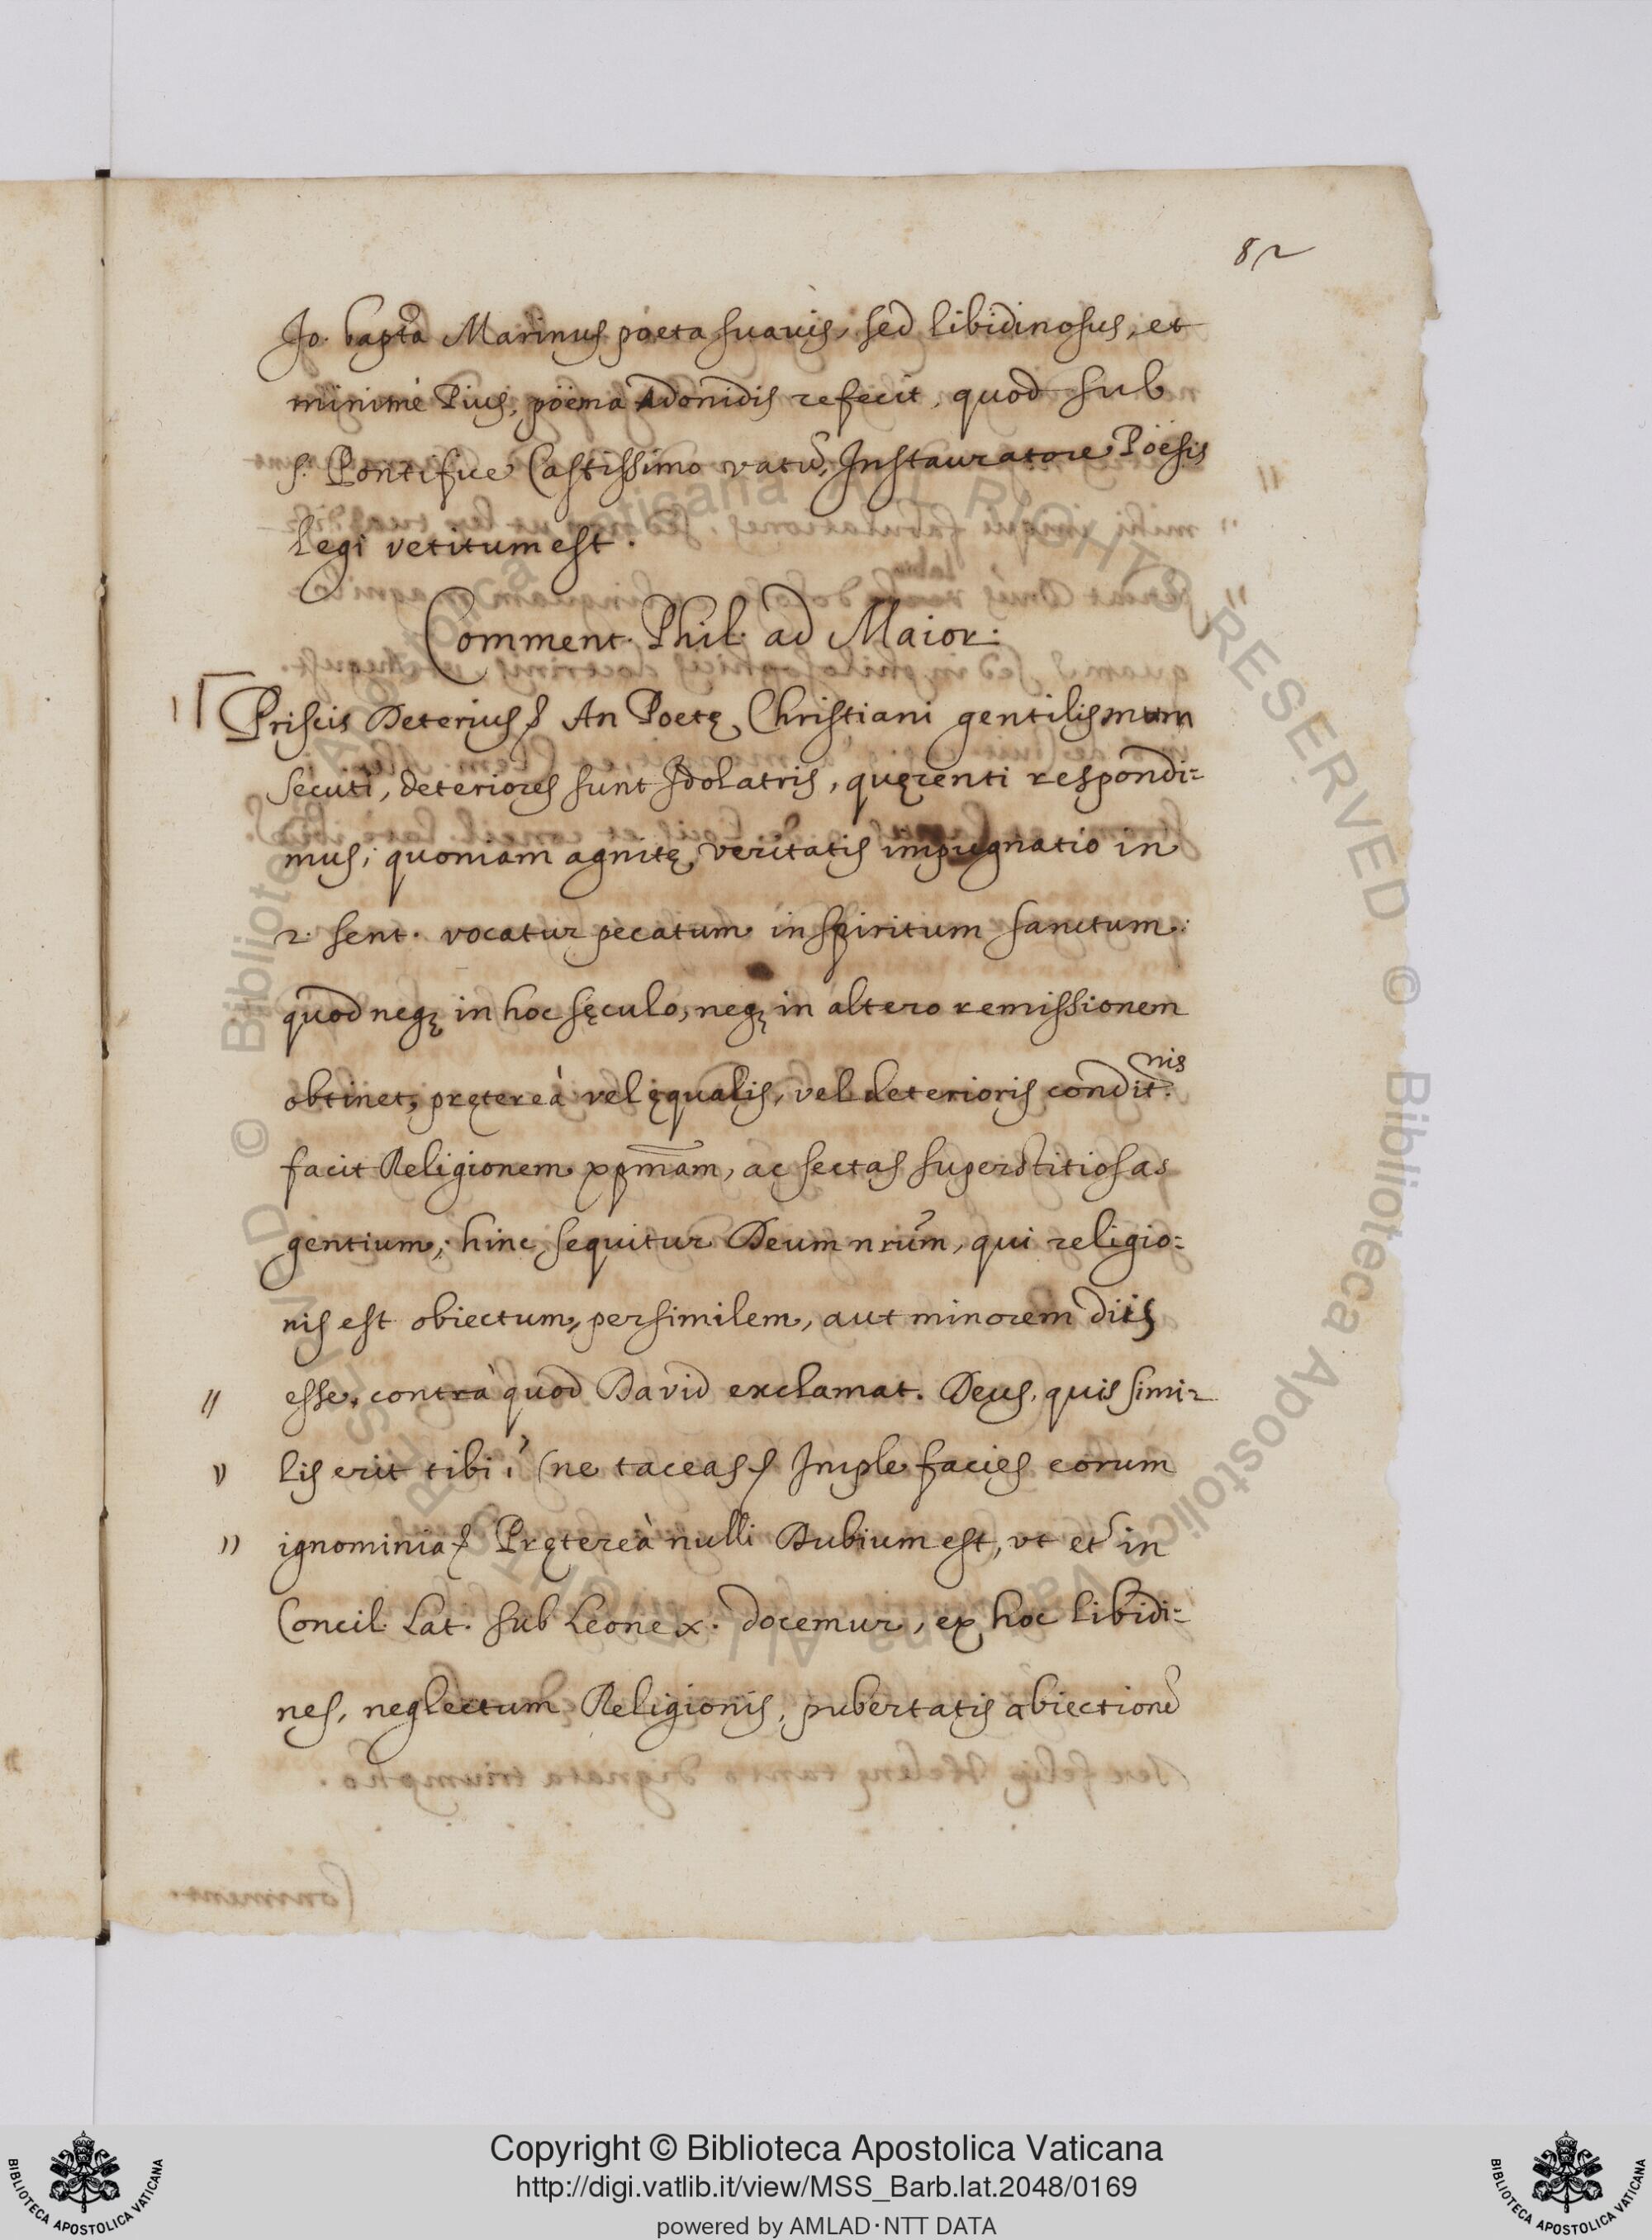 82
Jo. bapta Marinus poeta suauis, sed libidinosus, et
minimè Pius, pöema Adonidis refecit, quod sub
s. Pontifice Castissimo vatũ, Instauratore Pöesis
legi vetitum est.
Comment. Phil. ad Maior:
Priscis Deterius) An Poetę Christiani gentilismum
secuti, deteriores sunt Idolatris, quęrenti respondi=
mus; quoniam agnitę veritatis impugnatio in
2. sent. vocatur pecatum in spiritum sanctum:
quod neqȝ in hoc sęculo, neqȝ in altero remissionem
obtinet, pręterеà vel ęqualis, vel deterioris condit.nis
facit Religionem xp̃mam, ac sectas superstitiosas
gentium; hinc sequitur Deum nrũm, qui religio=
nis est obiectum, persimilem, aut minorem diis
esse, contrà quod David exclamat. Deus, quis simi=
lis erit tibi? (ne taceas) Imple facies eorum
ignominia) Prętereà nulli Dubium est, vt et in
Concil. Lat. sub Leone x. docemur, ex hoc libidi=
nes, neglectum Religionis, pubertatis abiectionẽ
Copyright © Biblioteca Apostolica Vaticana
http://digi.vatlib.it/view/MSS_Barb.lat.2048/0169
powered by AMLAD·NTT DATA
BIBLIOTECA APOSTOLICA VATICANA
BIBLIOTECA APOSTOLICA VATICANA